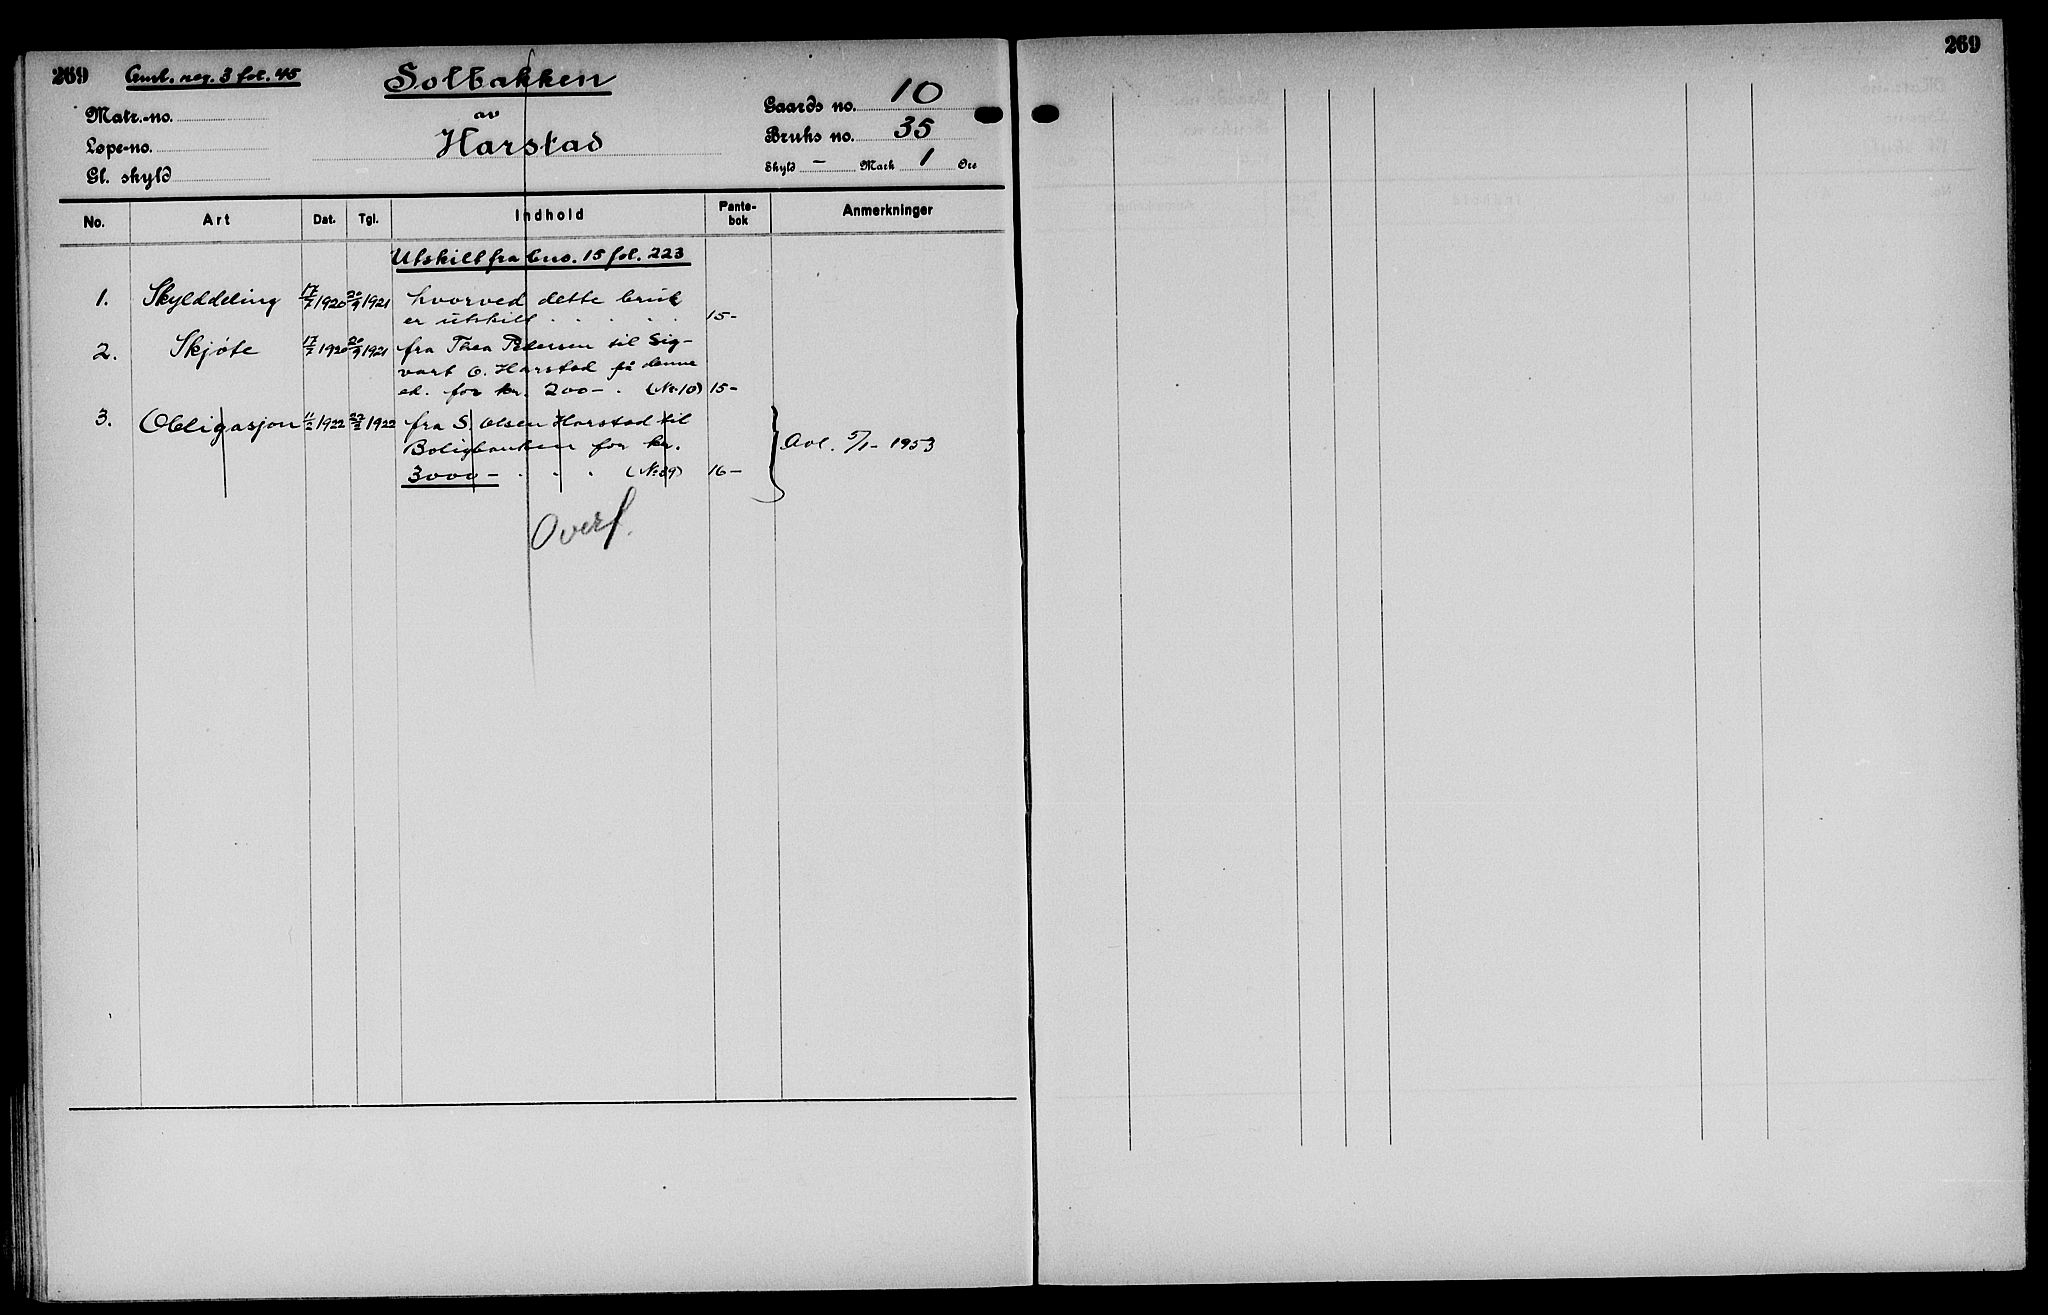 269
Aml. reg. 3 fol. 45
Solbakken
av
Harstad
Matr.-no.
Løpe-no.
Gl. skyld
Gaards no. 10
Bruks no. 35
Skyld - Mark 1 Øre
No. Art Dat. Tgl. Indhold Pante-bok Anmerkninger
Utskilt fra bno. 15 fol. 223
1. Skylddeling 17/7 1920 20/9 1921 hvorved dette bruk
er utskilt . . . . . 15-
2. Skjøte 17/7 1920 20/9 1921 fra Thea Pedersen til Sig-
vart O. Harstad på denne
ed. for kr. 200- . (No. 10) 15-
3. Obligasjon 11/2 1922 22/2 1922 fra S. Olsen Harstad til
Boligbanken for kr.
3000- . . . (No. 89) 16-
Avl. 5/1- 1953
Overf.
269